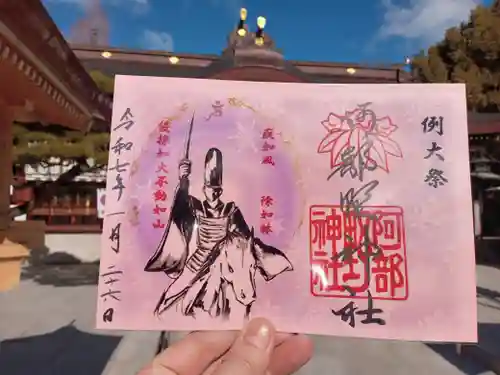 例大祭
阿部野神社
阿部野神社
疾如風 徐如林
侵掠如火 不動如山
令和七年一月二十六日